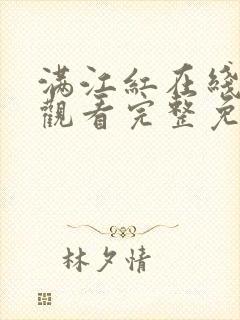 满江红在线
觀看完整免
林夕情